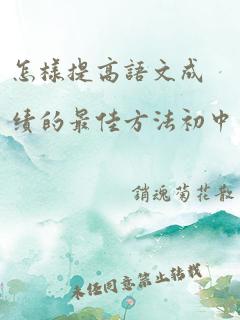 怎樣提高語文成
績的最佳方法初中
銷魂菊花散
未經同意禁止轉載